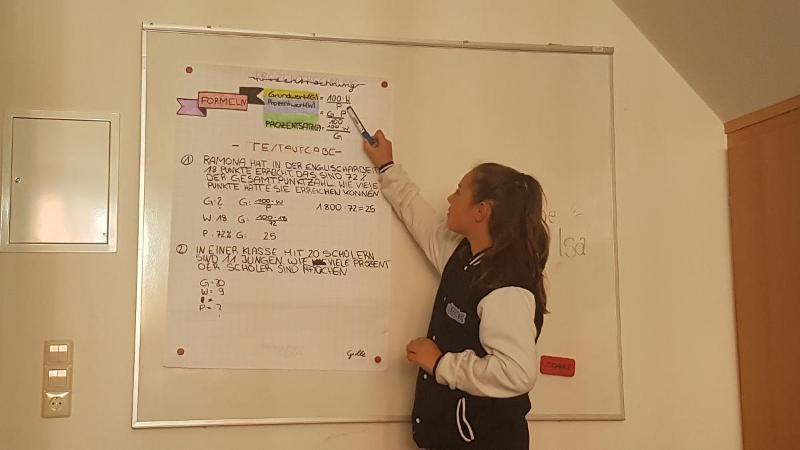 Prozentrechnung
FORMELN
Grundwert(G) = 100·W
P
Prozentwert(W) = G·P
100
PROZENTSATZ(P) = 100·W
G
- TEXTAUFGABE -
① RAMONA HAT IN DER ENGLISCHARBEIT
18 PUNKTE ERREICHT. DAS SIND 72%
DER GESAMTPUNKTZAHL. WIE VIELE
PUNKTE HÄTTE SIE ERREICHEN KÖNNEN
G: ? G: 100·W
P
1800:72=25
W: 18 G: 100·18
72
P: 72% G: 25
② IN EINER KLASSE MIT 20 SCHÜLERN
SIND 11 JUNGEN. WIE VIELE PROZENT
DER SCHÜLER SIND MÄDCHEN
G=20
W=9
P=?
lsa